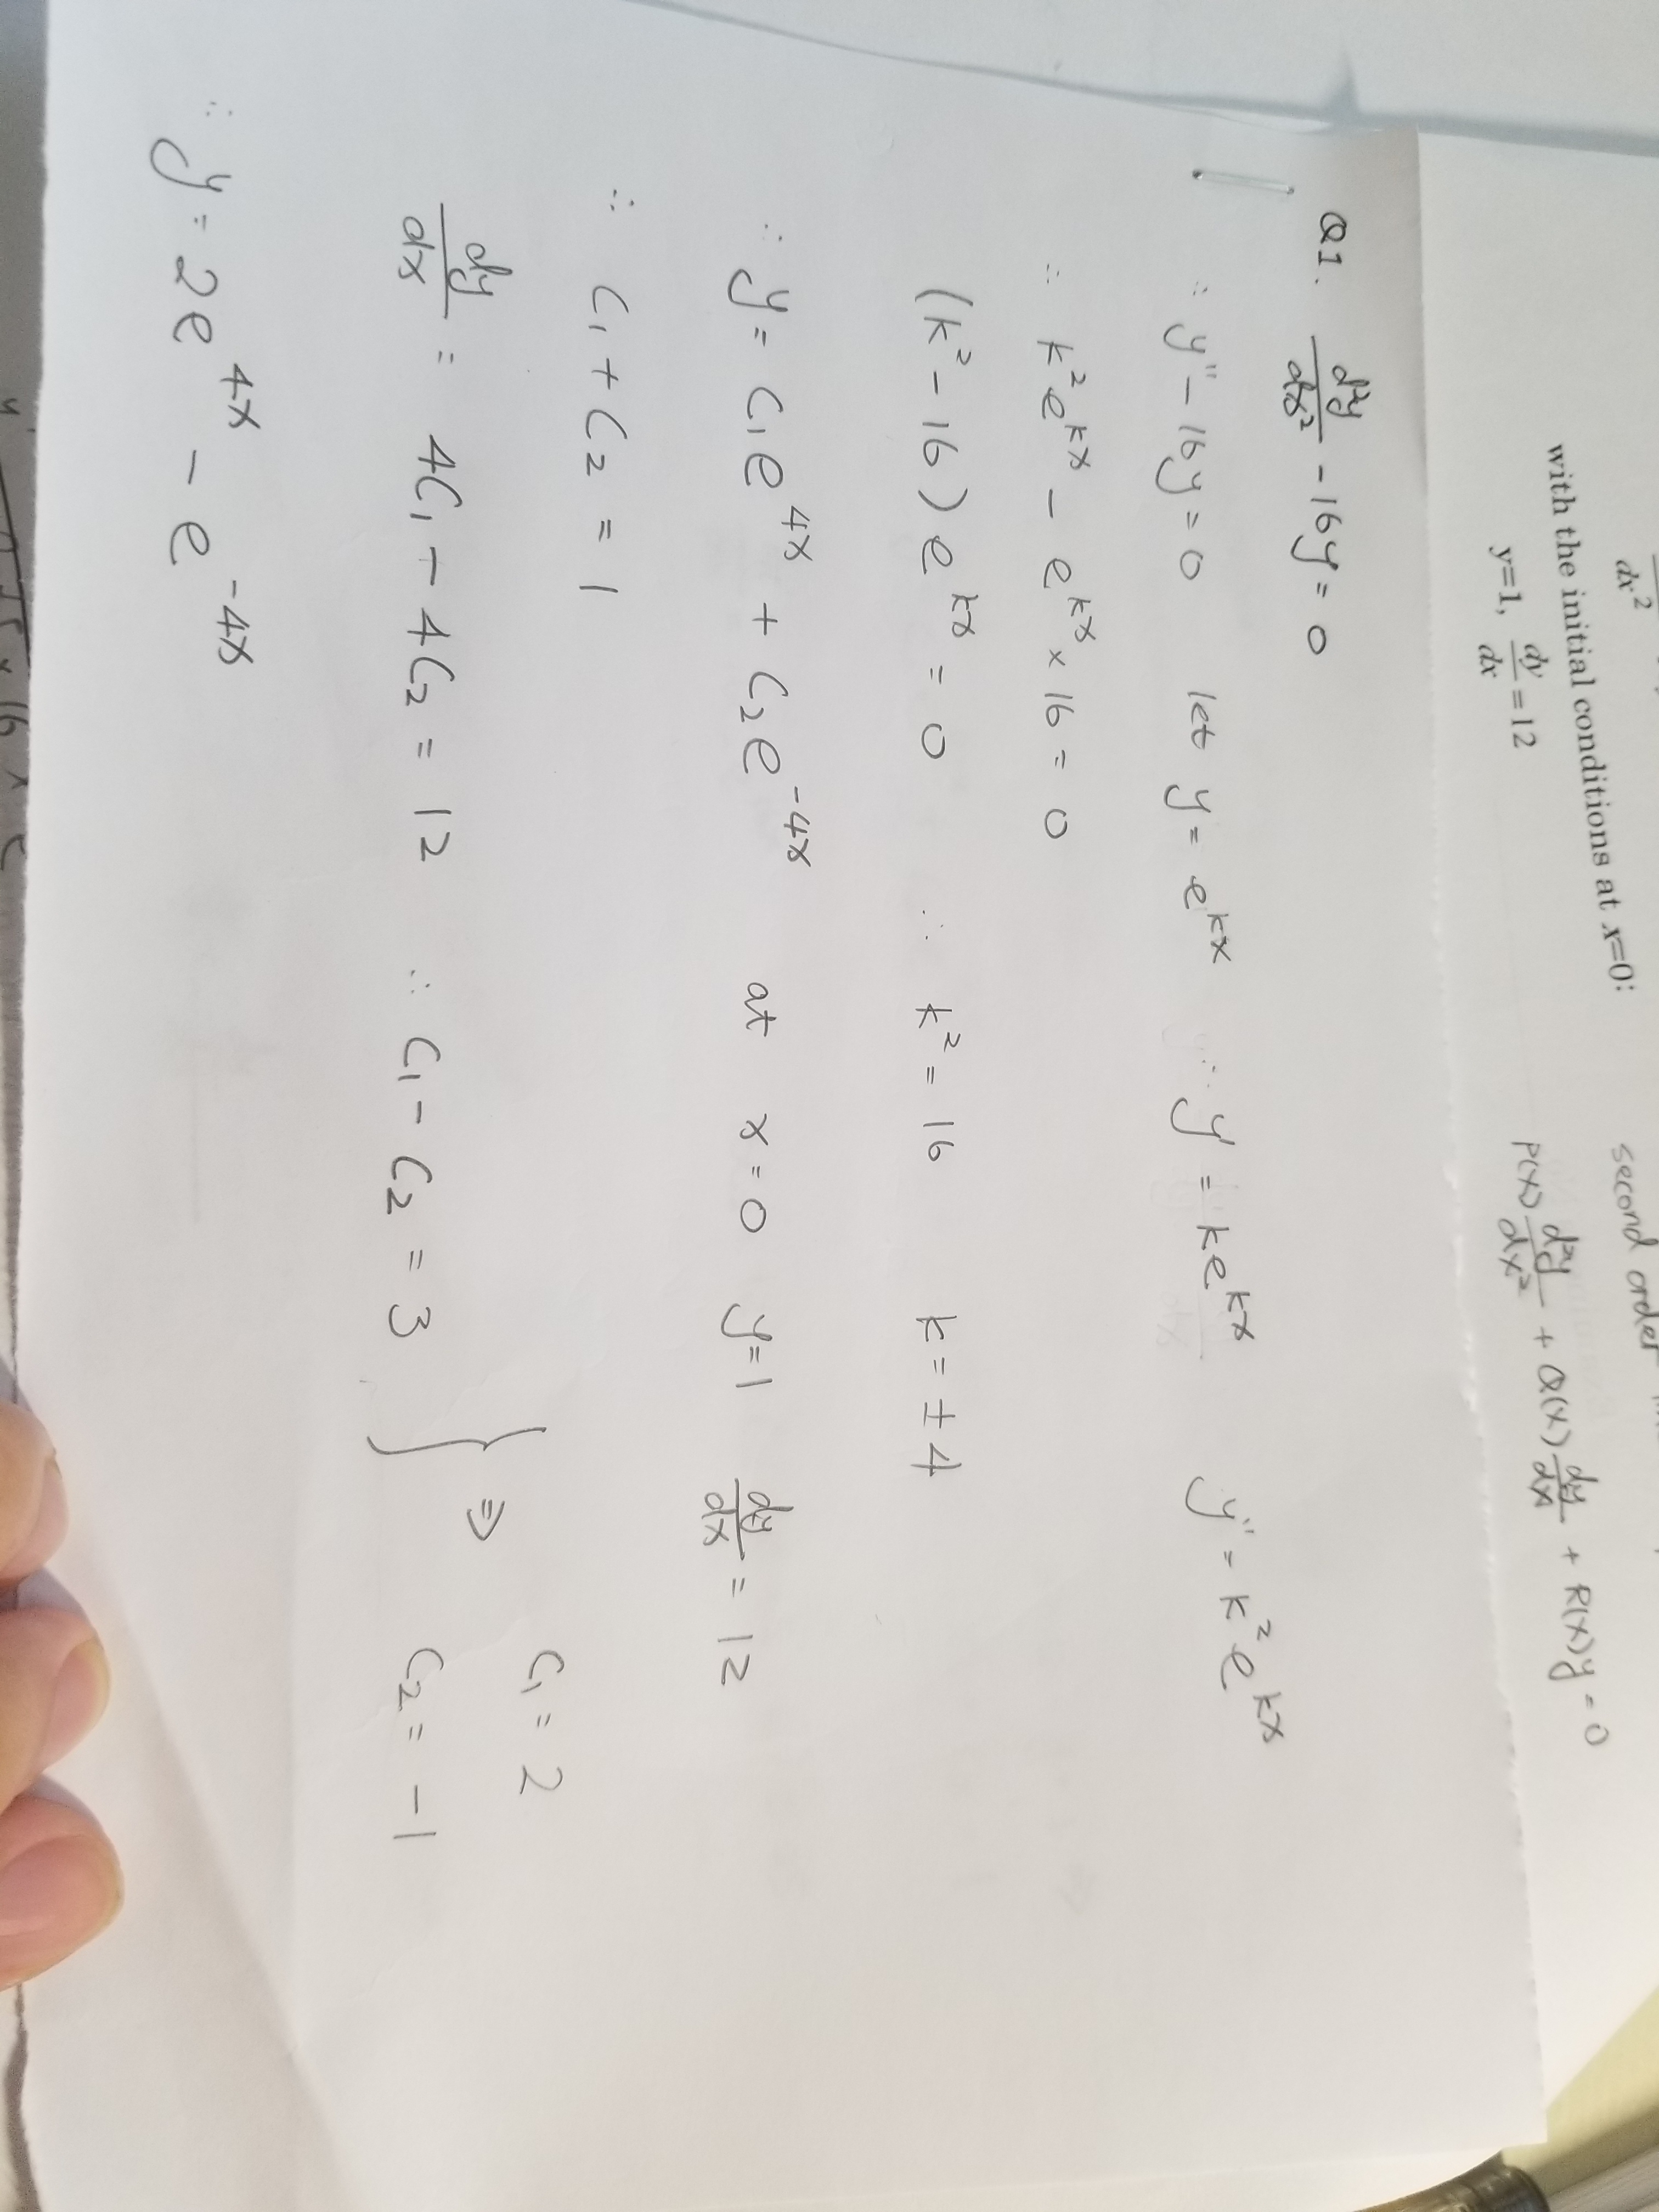 dx²
second order
with the initial conditions at x=0:
P(x) d²y/dx² + Q(x) dy/dx + R(x)y = 0
y=1, dy/dx = 12
Q1. d²y/dx² - 16y = 0
∴ y'' - 16y = 0 let y = e^{kx} ∴ y' = ke^{kx} y'' = k²e^{kx}
∴ k²e^{kx} - e^{kx} × 16 = 0
(k² - 16) e^{kx} = 0 ∴ k² = 16 k = ± 4
∴ y = C₁e^{4x} + C₂e^{-4x} at x = 0 y = 1 dy/dx = 12
∴ C₁ + C₂ = 1
dy/dx = 4C₁ - 4C₂ = 12 ∴ C₁ - C₂ = 3 } ⇒ C₁ = 2
C₂ = -1
∴ y = 2e^{4x} - e^{-4x}